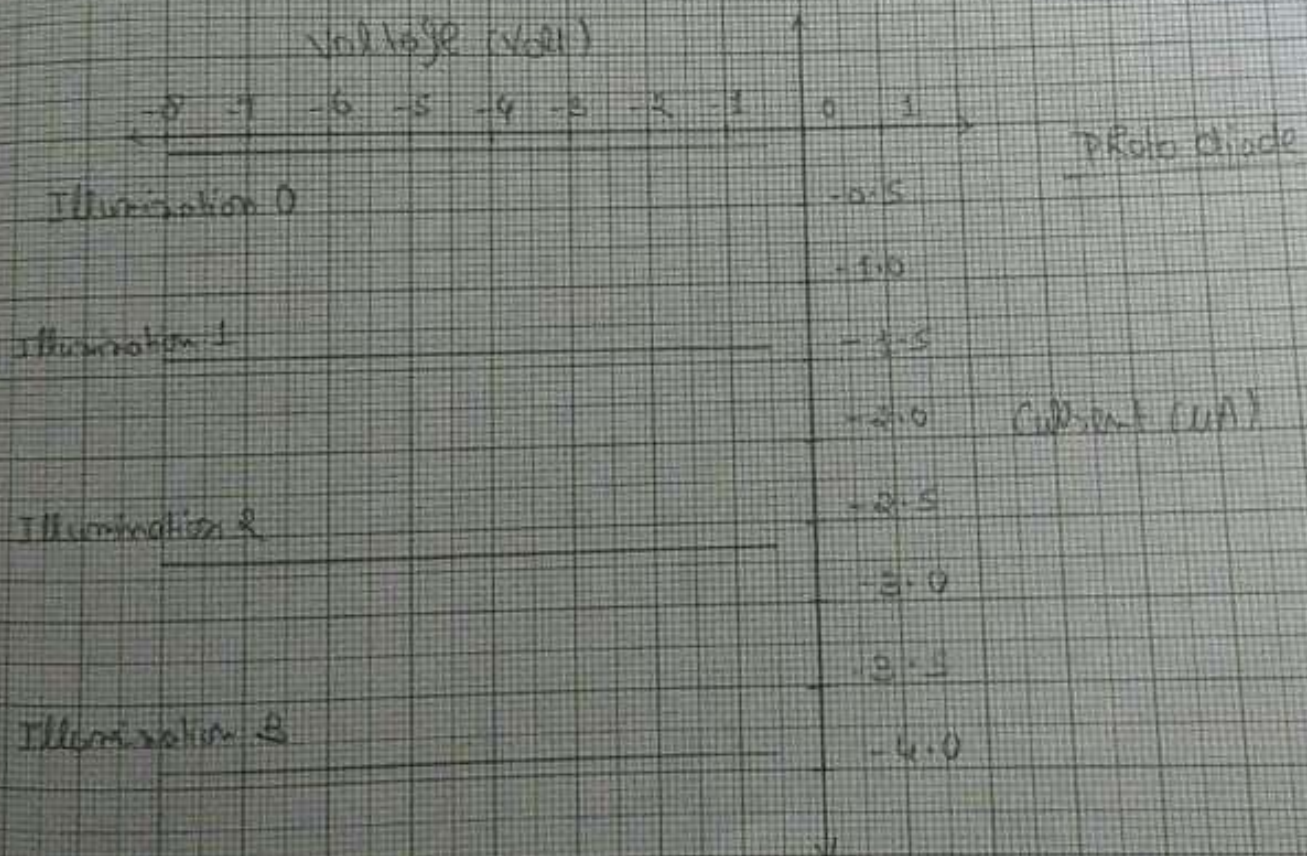 Voltage (Volt)
-8 -7 -6 -5 -4 -3 -2 -1 0 1
Photo diode
Illumination 0
-0.5
-1.0
Illumination 1
-1.5
-2.0 Current (uA)
-2.5
Illumination 2
-3.0
-3.5
Illumination 3
-4.0